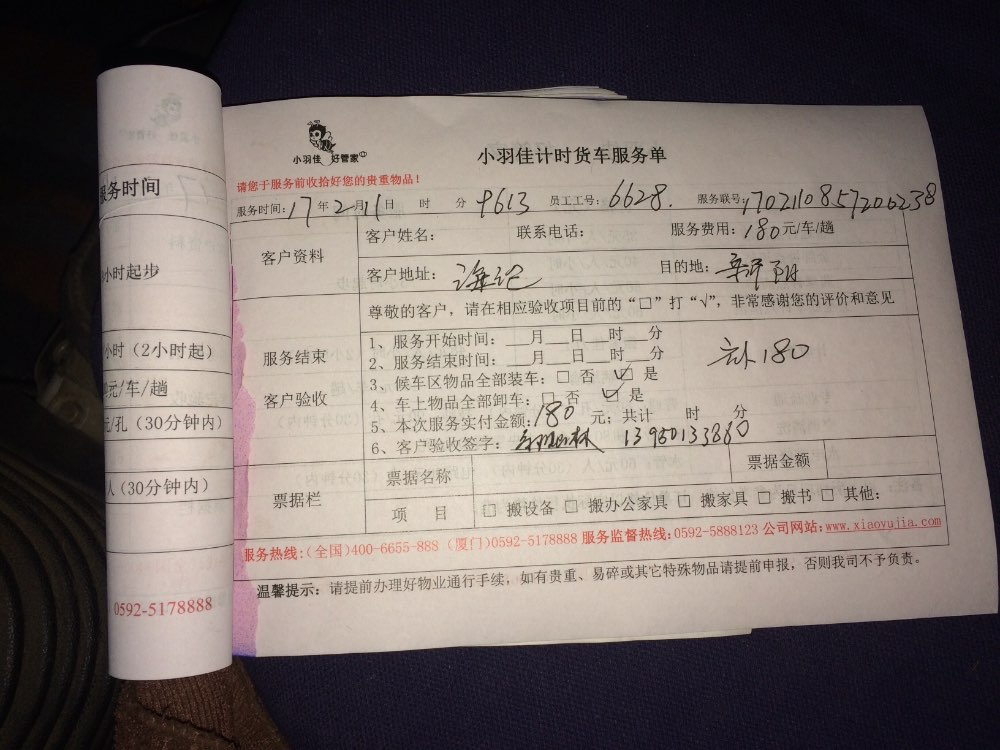 小羽佳 好管家
小羽佳计时货车服务单
请您于服务前收拾好您的贵重物品！
服务时间：17年2月11日 时 分 9613 员工工号：6628. 服务联号：
客户资料
客户姓名： 联系电话： 服务费用：180元/车/趟
客户地址： 海沧 目的地：
尊敬的客户，请在相应验收项目前的“□”打“√”，非常感谢您的评价和意见
服务结束
客户验收
1、服务开始时间：__月__日__时__分
2、服务结束时间：__月__日__时__分
3、候车区物品全部装车：□ 否 ☑ 是
4、车上物品全部卸车：□ 否 ☑ 是
5、本次服务实付金额：180元；共计 时 分
6、客户验收签字： 13950133880
180
票据栏
票据名称 票据金额
项 目 □ 搬设备 □ 搬办公家具 □ 搬家具 □ 搬书 □ 其他：
服务热线：（全国）400-6655-888（厦门）0592-5178888 服务监督热线：0592-5888123 公司网站：www.xiaoyujia.com
温馨提示：请提前办理好物业通行手续，如有贵重、易碎或其它特殊物品请提前申报，否则我司不予负责。
服务时间
小时起步
小时（2小时起）
元/车/趟
元/孔（30分钟内）
人（30分钟内）
0592-5178888